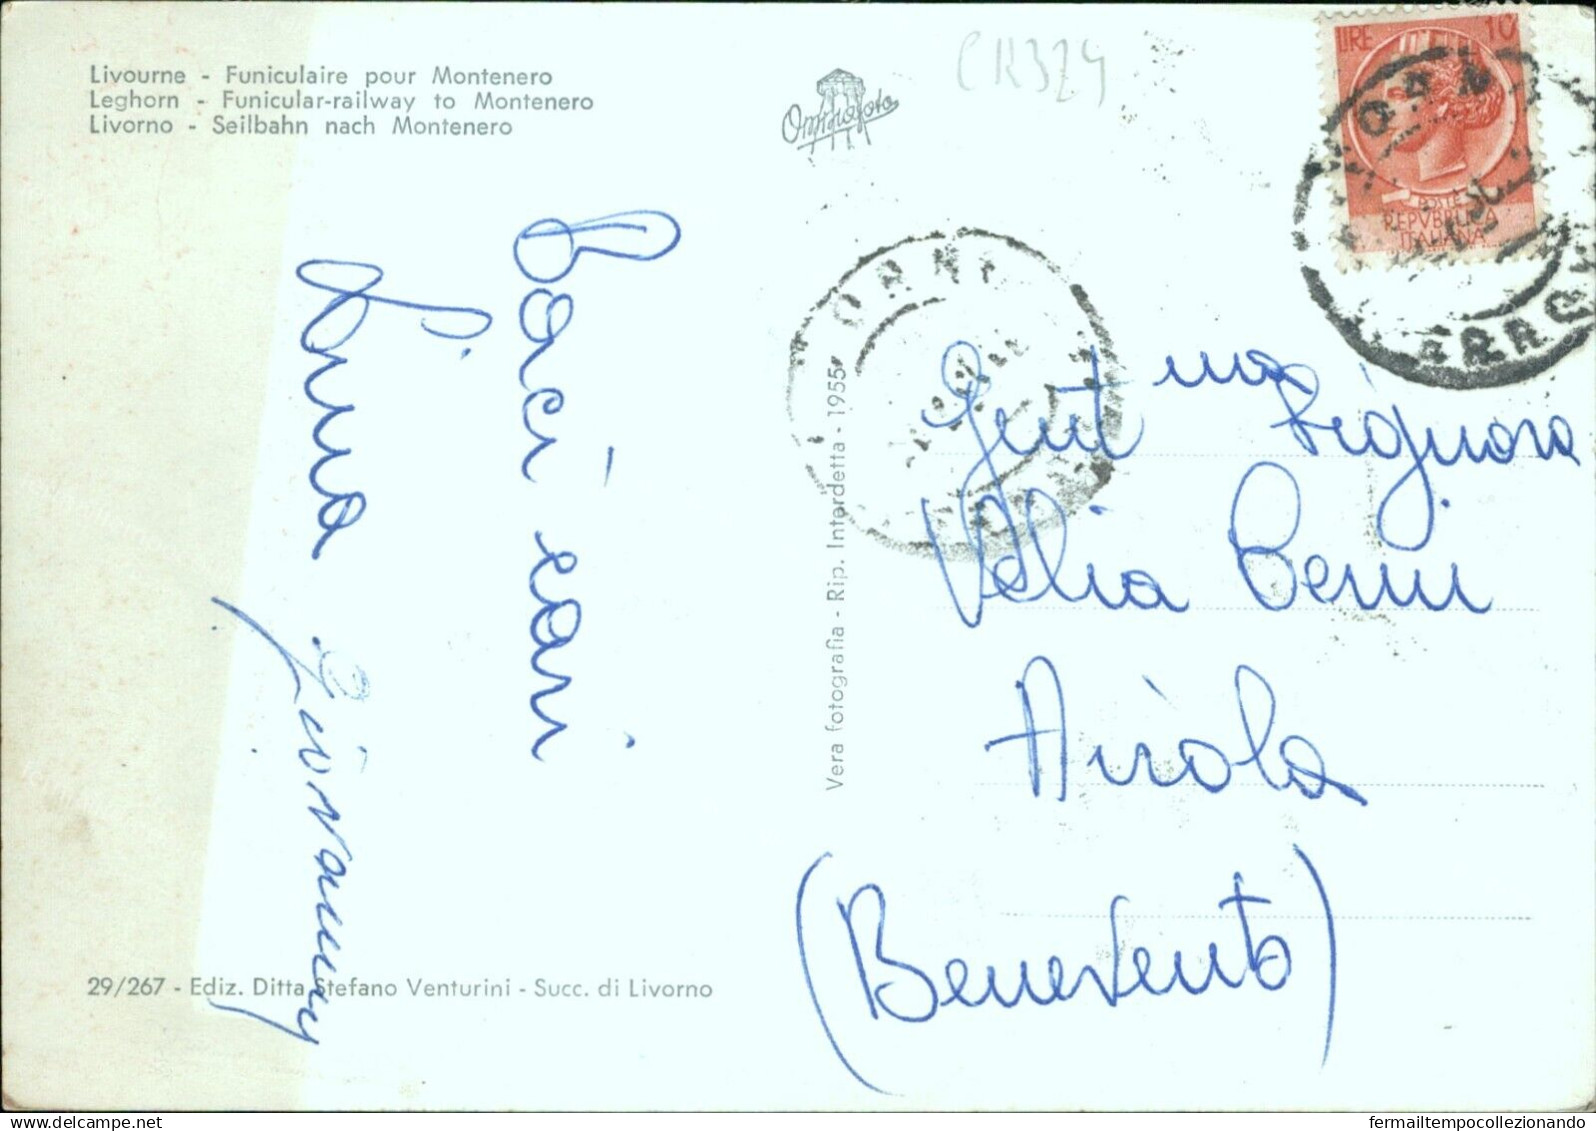 Livourne - Funiculaire pour Montenero
Leghorn - Funicular-railway to Montenero
Livorno - Seilbahn nach Montenero
CR324
LIRE 10
POSTE
REPVBBLICA
ITALIANA
Baci cari
Giovanny
Vera fotografia - Rip. Interdetta - 1955
Gent ma Signora
Velia
Airola
(Benevento)
29/267 - Ediz. Ditta Stefano Venturini - Succ. di Livorno
fermailtempocollezionando